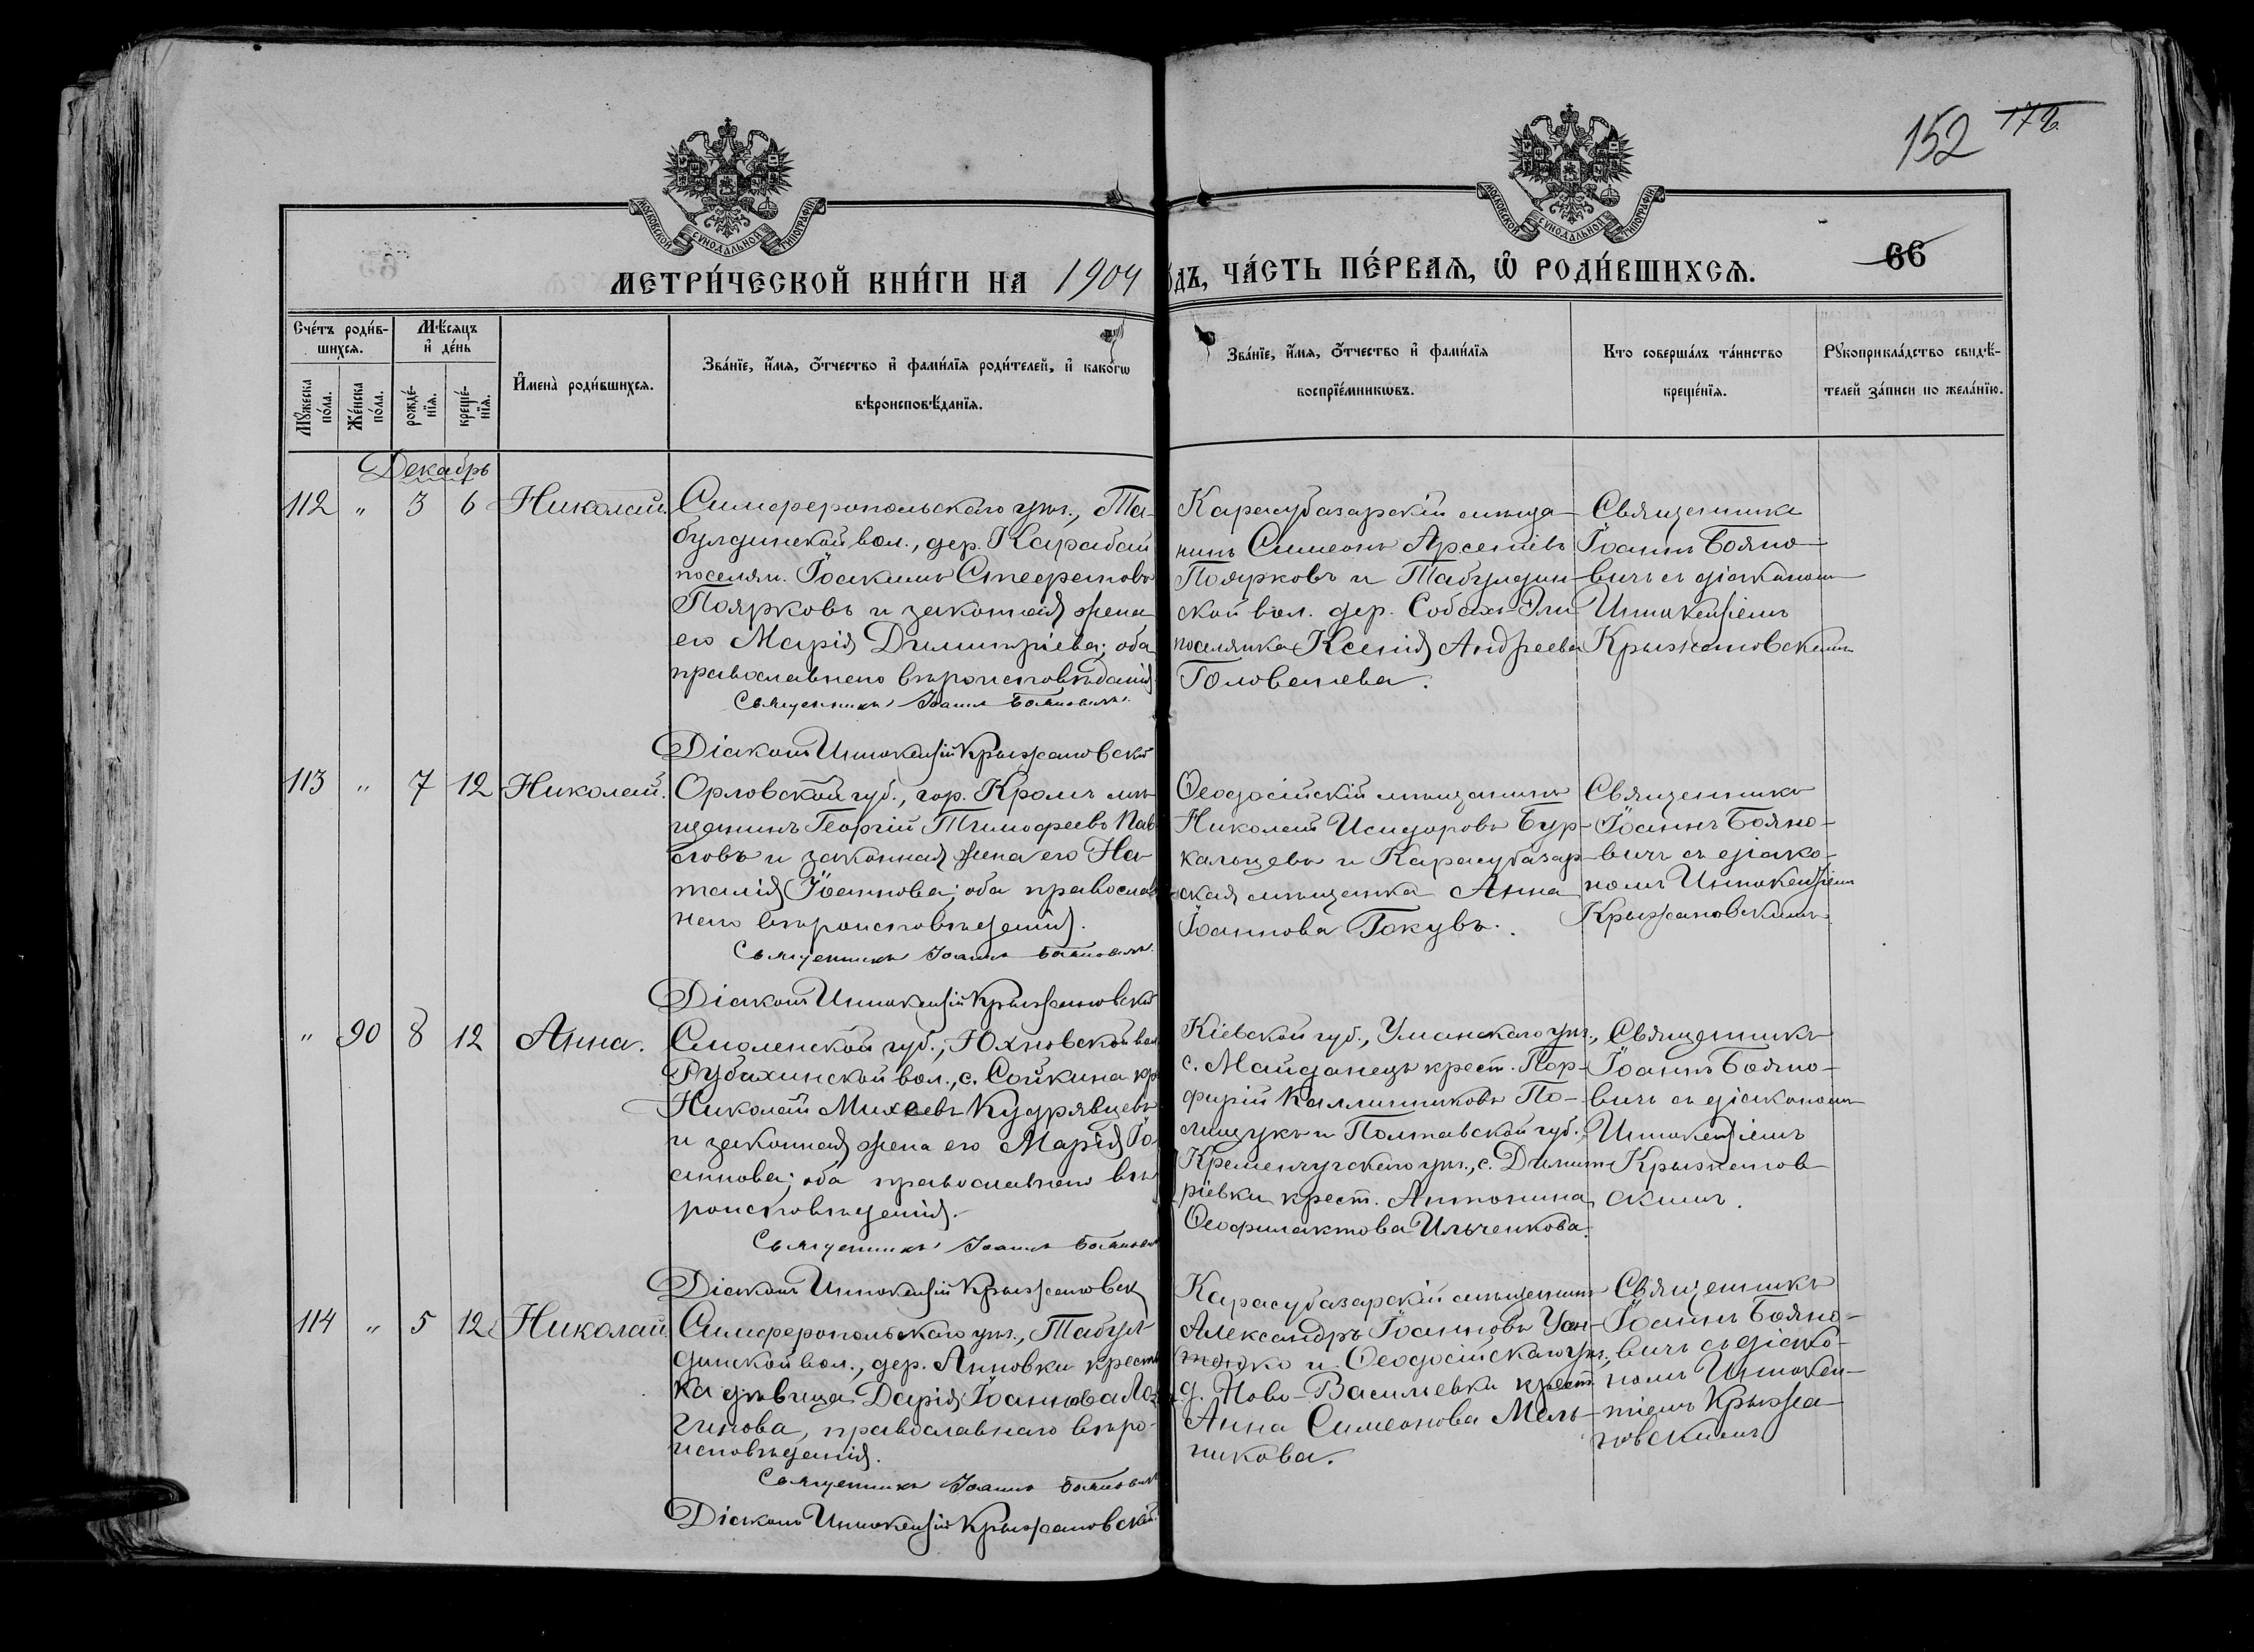 152 172
МОСКОВСКОЙ СѴНОДАЛЬНОЙ ТИПОГРАФІИ
МОСКОВСКОЙ СѴНОДАЛЬНОЙ ТИПОГРАФІИ
МЕТРИ́ЧЕСКОЙ КНИ́ГИ НА 1904
ѻ́дъ, ЧА́СТЬ ПЕ́РВАѦ, Ѡ҆ РОДИ́ВШИХСѦ. 66
Сче́тъ роди́в-
шихсѧ.
Мѣ́сѧцъ
и҆ де́нь
Мꙋ́жеска
по́ла.
Же́нска
по́ла.
рожде́-
нїѧ.
креще́-
нїѧ.
И҆мена̀ роди́вшихсѧ.
Зва́нїе, и҆́мѧ, ѻ҆́тчество и҆ фами́лїѧ роди́телей, и҆ како́гѡ
вѣроисповѣ́данїѧ.
Зва́нїе, и҆́мѧ, ѻ҆́тчество и҆ фами́лїѧ
воспрїе́мникѡвъ.
Кто соверша́лъ та́инство
креще́нїѧ.
Рꙋкоприкла́дство свидѣ́-
телей за́писи по жела́нїю.
Декабрь
112 " 3 6 Николай.
Симферопольскаго уѣз., Та-
булдинской вол., дер. Карабай
поселян. Іоакимъ Стефановъ
Поярковъ и законная жена
его Марія Димитріева; оба
православнаго вѣроисповѣданія
Священникъ Іоаннъ Бояновичъ.
Діаконъ Иннокентій Крыжановскій
Карасубазарскій мѣща-
нинъ Симеонъ Арсеніевъ
Поярковъ и Табулдин-
ской вол. дер. Собахъ-Эли
поселянка Ксенія Андреева
Головачева.
Священникъ
Іоаннъ Бояно-
вичъ съ діакономъ
Иннокентіемъ
Крыжановскимъ
113 " 7 12 Николай.
Орловской губ., гор. Кромъ мѣ-
щанинъ Георгій Тимофеевъ Пав-
ловъ и законная жена его На-
талія Іоаннова; оба православ-
наго вѣроисповѣданія.
Священникъ Іоаннъ Бояновичъ.
Діаконъ Иннокентій Крыжановскій
Ѳеодосійскій мѣщанинъ
Николай Исидоровъ Бур-
кальцевъ и Карасубазар-
ская мѣщанка Анна
Іоаннова Гокувъ.
Священникъ
Іоаннъ Бояно-
вичъ съ діако-
номъ Иннокентіемъ
Крыжановскимъ
" 90 8 12 Анна.
Смоленской губ., Юхновской вол.
Рубихинской вол., с. Сойкина кр.
Николай Михеевъ Кудрявцевъ
и законная жена его Марія Іо-
аннова; оба православнаго вѣ-
роисповѣданія.
Священникъ Іоаннъ Бояновичъ
Діаконъ Иннокентій Крыжановск
Кіевской губ., Уманскаго уѣз.,
с. Майданецъ крест. Пор-
фирій Каллиниковъ По-
лищукъ и Полтавской губ.,
Кременчугскаго уѣз., с. Димит-
ріевки крест. Антонина
Ѳеофилактова Ильченкова.
Священникъ
Іоаннъ Бояно-
вичъ съ діакономъ
Иннокентіемъ
Крыжанов-
скимъ.
114 " 5 12 Николай
Симферопольскаго уѣз., Табул-
динской вол., дер. Анновки крестьян-
ка дѣвица Дарія Іоаннова Ло-
гинова, православнаго вѣро-
исповѣданія.
Священникъ Іоаннъ Бояновичъ
Діаконъ Иннокентій Крыжановскій.
Карасубазарскій мѣщанинъ
Александръ Іоанновъ
и Ѳеодосійскаго уѣз.,
д. Ново-Васильевки крест.
Анна Симеонова Мель-
никова.
Священникъ
Іоаннъ Бояно-
вичъ съ діако-
номъ Иннокен-
тіемъ Крыжа-
новскимъ